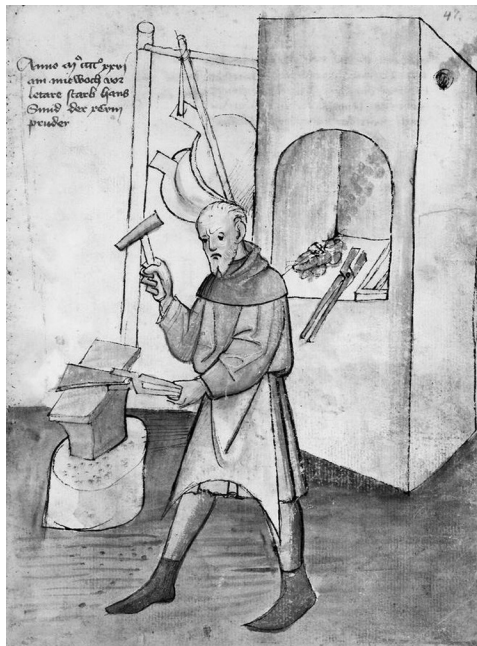 47.
Anno mº cccc xxvj
am mitwoch vor
letare starb hans
Smid der xcviij
pruder